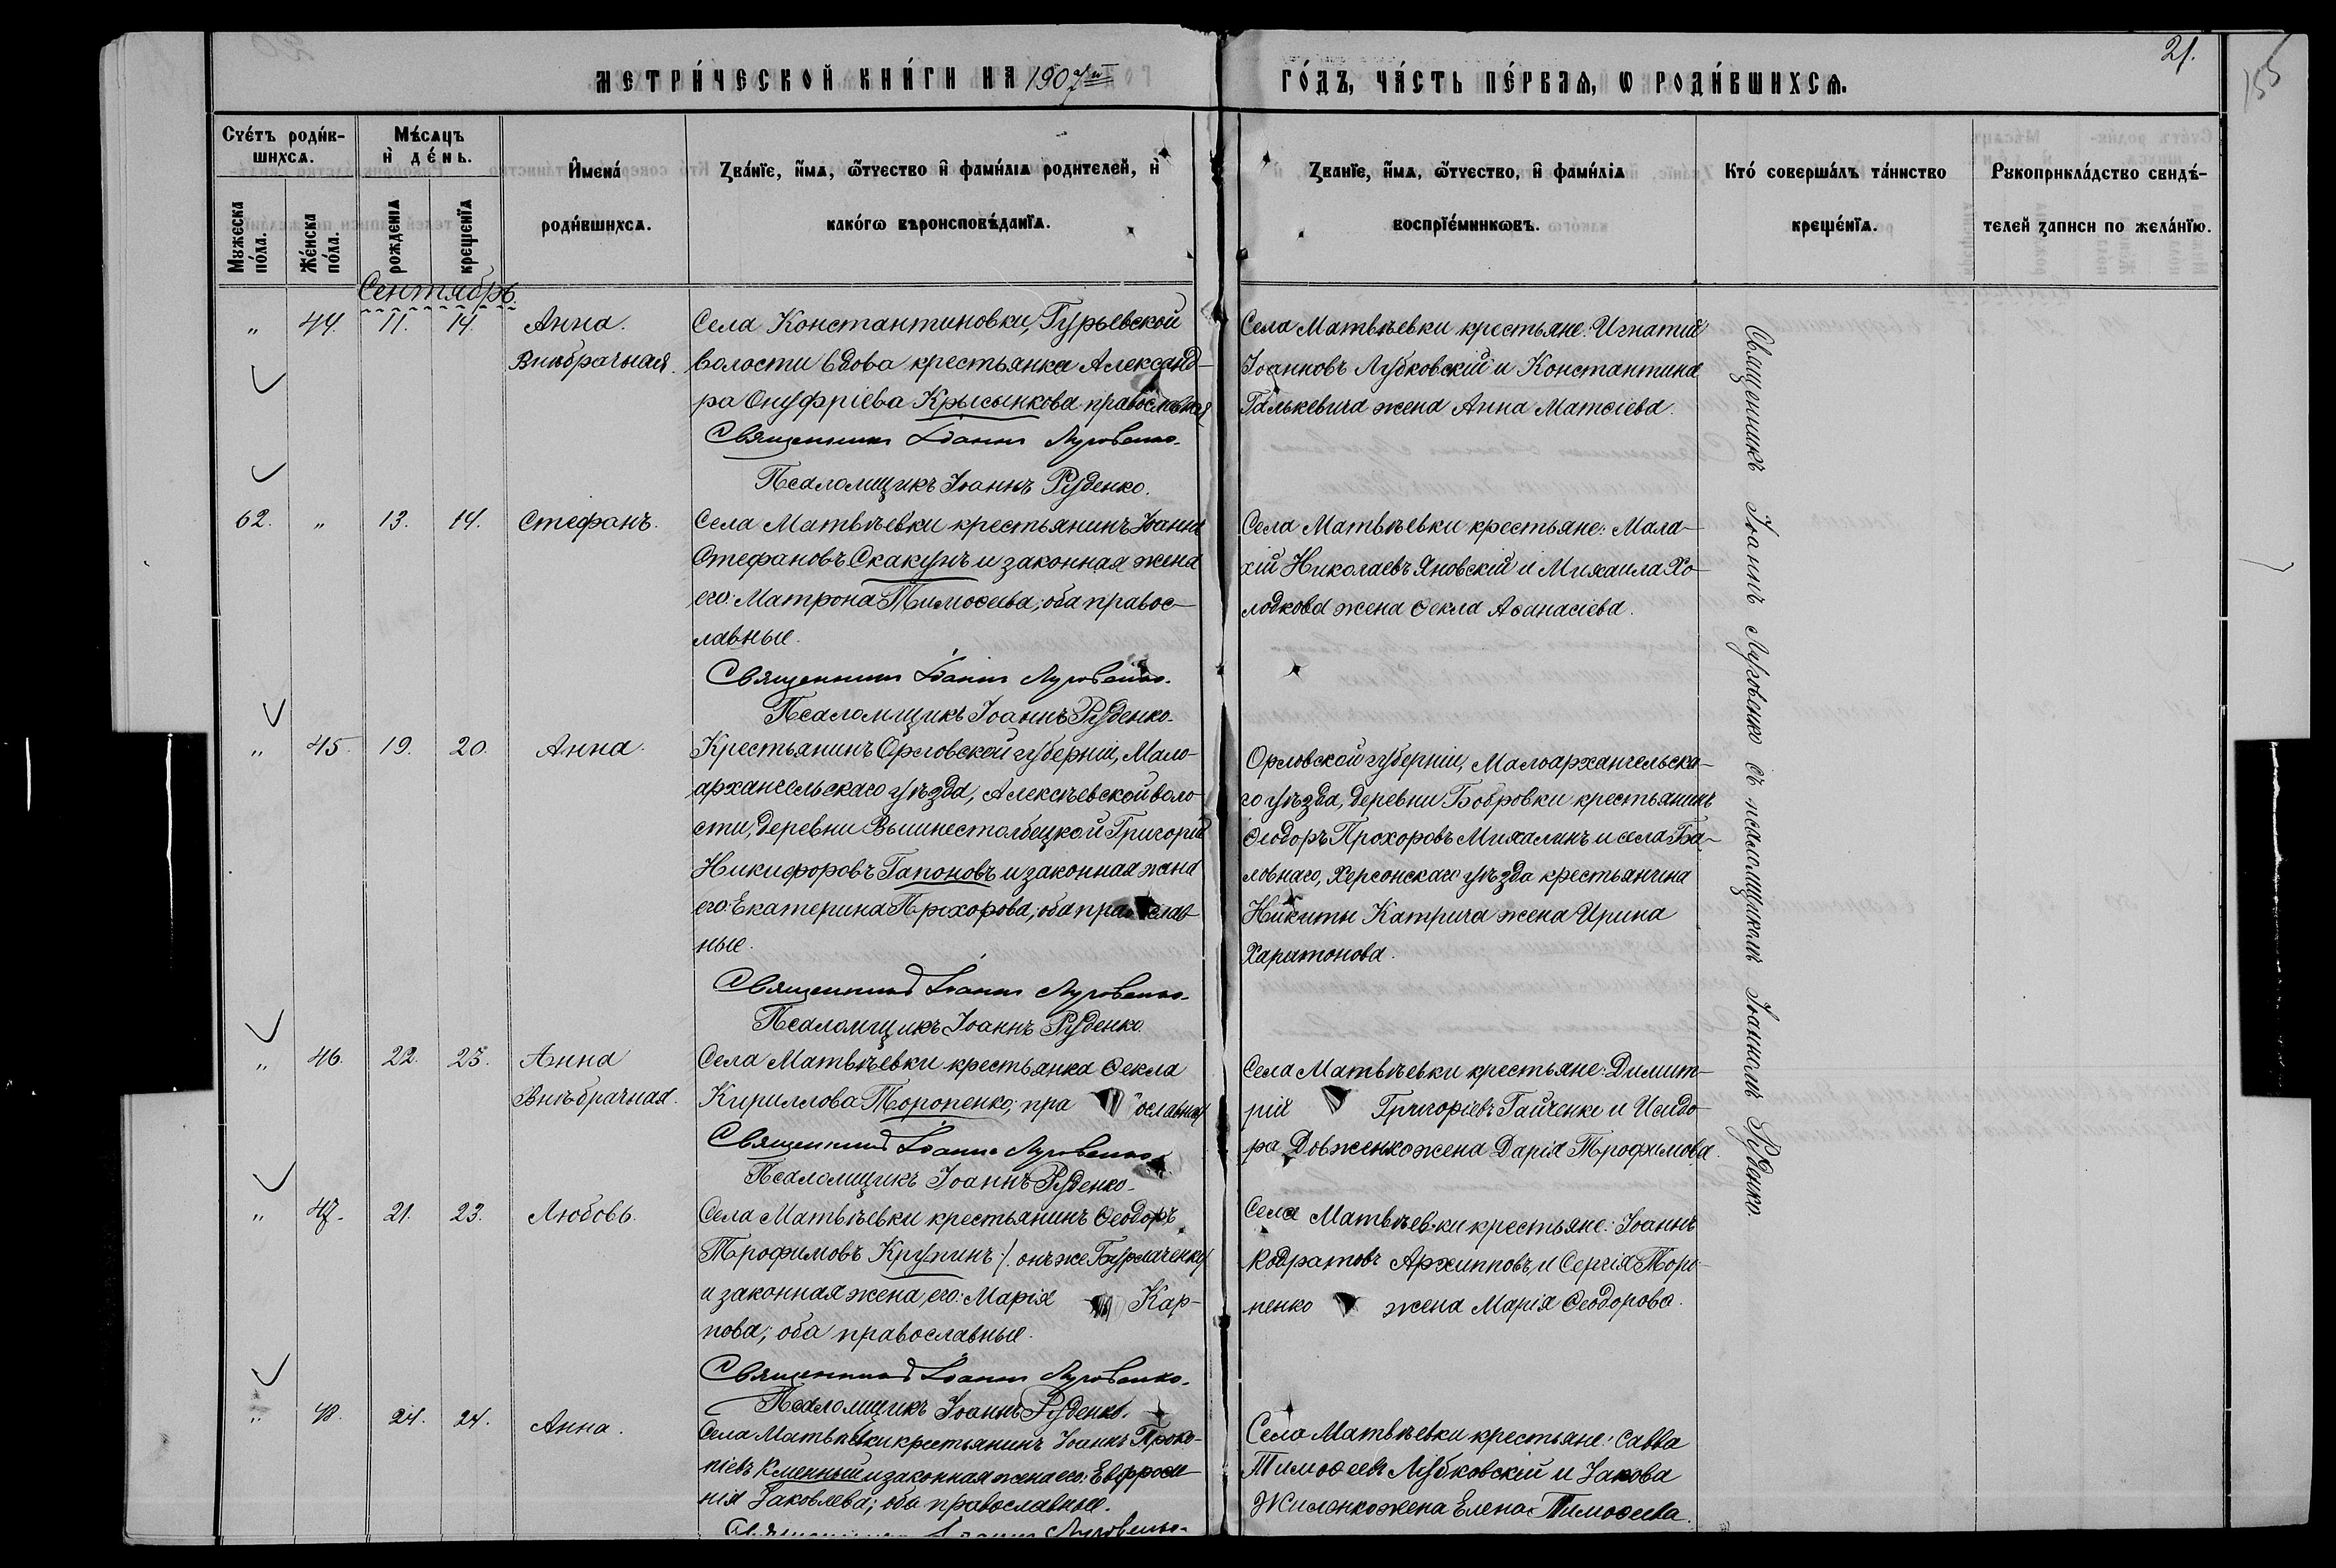 21.
155
МЕТРИ́ЧЕСКОЙ КНИ́ГИ НА 1907й ГО́ДЪ, ЧА́СТЬ ПЕ́РВАЯ, Ѡ РОДИ́ВШИХСѦ.
Сче́тъ роди́в-
шихсѧ.
Мꙋжеска по́ла.
Же́нска по́ла.
Мѣ́сѧцъ
и҆ де́нь.
рожденїѧ
крещенїѧ
И҆мена́
роди́вшихсѧ.
Зва́нїе, и҆́мѧ, ѻ҆́тчество и҆ фами́лїѧ родителей, и҆
како́гѡ вѣроисповѣ́данїѧ.
Званїе, и҆́мѧ, ѻ҆́тчество, и҆ фами́лїѧ
воспрїе́мникѡвъ.
Кто́ соверша́лъ та́инство
креще́нїѧ.
Рꙋкоприкла́дство свидѣ́-
телей записи по жела́нїю.
Сентябрь.
" 44. 11. 14. Анна.
Внѣбрачная.
Села Константиновки, Гурьевской
волости вдова крестьянка Александ-
ра Онуфріева Крысынкова православная
Священникъ Іоаннъ Луговенко.
Псаломщикъ Іоаннъ Руденко.
Села Матвѣевки крестьяне: Игнатій
Іоанновъ Лубковскій и Константина
Галькевича жена Анна Матѳіева.
62. " 13. 14. Стефанъ.
Села Матвѣевки крестьянинъ Іоаннъ
Стефановъ Скакунъ и законная жена
его: Матрона Тимоѳеева; оба правос-
лавные.
Священникъ Іоаннъ Луговенко.
Псаломщикъ Іоаннъ Руденко.
Села Матвѣевки крестьяне: Мала-
хій Николаевъ Яновскій и Михаила Хо-
лодкова жена Ѳекла Аѳанасіева.
" 45. 19. 20. Анна.
Крестьянинъ Орловской губерніи, Мало-
архангельскаго уѣзда, Алексѣевской воло-
сти, деревни Вышнестолбецкой Григорій
Никифоровъ Гапоновъ и законная жена
его: Екатерина Прохорова; оба православ
ные.
Священникъ Іоаннъ Луговенко.
Псаломщикъ Іоаннъ Руденко.
Орловской губерніи, Малоархангельска-
го уѣзда, деревни Бобровки крестьянинъ
Ѳеодоръ Прохоровъ Михалинъ и села Ба-
ловнаго, Херсонскаго уѣзда крестьянина
Никиты Катрича жена Ирина
Харитонова.
" 46. 22. 23. Анна
Внѣбрачная.
Села Матвѣевки крестьянка Ѳекла
Кириллова Торопенко; пра ославная
Священникъ Іоаннъ Луговенко.
Псаломщикъ Іоаннъ Руденко.
Села Матвѣевки крестьяне: Димит-
рій Григоріевъ Гайченко и Исидо-
ра Довженко жена Дарія Трофимова.
" 47. 21. 23. Любовь.
Села Матвѣевки крестьянинъ Ѳеодоръ
Трофимовъ Крупинъ /: онъ же Бурлаченко/
и законная жена, его: Марія Кар-
пова; оба православные.
Священникъ Іоаннъ Луговенко.
Псаломщикъ Іоаннъ Руденко.
Села Матвѣевки крестьяне: Іоаннъ
Кодратовъ Архипповъ, и Сергія Торо-
пенко жена Марія Ѳеодорова.
" 48. 24. 24. Анна.
Села Матвѣевки крестьянинъ Іоаннъ Проко-
піевъ и законная жена его: Евфроси-
нія Іаковлева; оба православные.
Священникъ Іоаннъ Луговенко.
Села Матвѣевки крестьяне: Савва
Тимоѳеевъ Лубковскій и Іакова
Жиленко жена Елена Тимоѳеева.
Священникъ Іоаннъ Луговенко съ псаломщикомъ Іоанномъ Руденко.